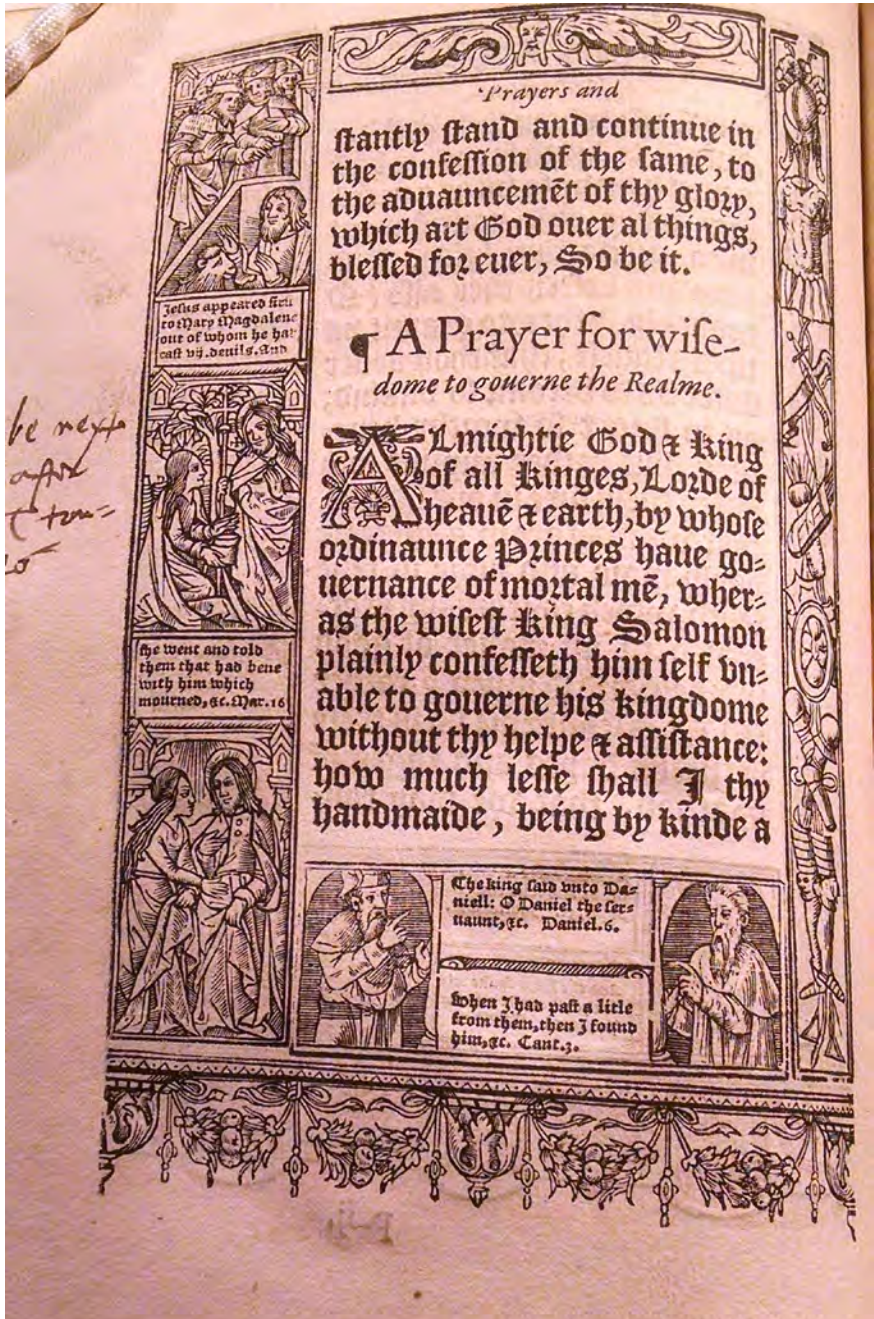 Prayers and
ſtantly ſtand and continue in
the confeſſion of the ſame, to
the aduauncemēt of thy glory,
which art God ouer al things,
bleſſed for euer, So be it.
¶ A Prayer for wiſe-
dome to gouerne the Realme.
ALmightie God & King
of all Kinges, Lorde of
heauē & earth, by whoſe
ordinaunce Princes haue go-
uernance of mortal mē, wher-
as the wiſeſt King Salomon
plainly confeſſeth him ſelf vn-
able to gouerne his kingdome
without thy helpe & aſſiſtance:
how much leſſe ſhall I thy
handmaide, being by kinde a
Jeſus appeared firſt
to Mary Magdalene
out of whom he had
caſt vij. deuils. And
ſhe went and told
them that had bene
with him which
mourned, &c. Mar. 16
The king ſaid vnto Da-
niell: O Daniel the ſer-
uaunt, &c. Daniel. 6.
When I had paſt a litle
from them, then I found
him, &c. Cant. 3.
be next
after